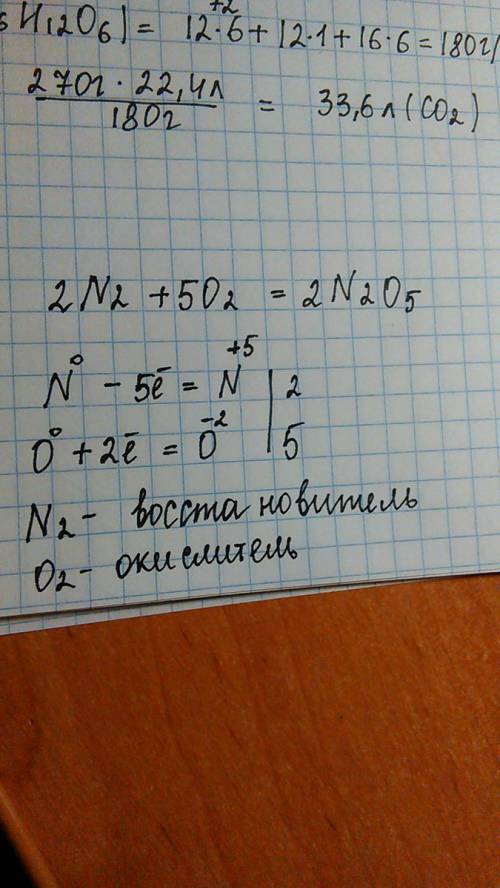 H₁₂O₆) = 12·6 + 12·1 + 16·6 = 180г/
270г · 22,4л / 180г = 33,6л (CO₂)
2N₂ + 5O₂ = 2N₂O₅
N⁰ - 5ē = N⁺⁵ | 2
O⁰ + 2ē = O⁻² | 5
N₂ - восстановитель
O₂ - окислитель